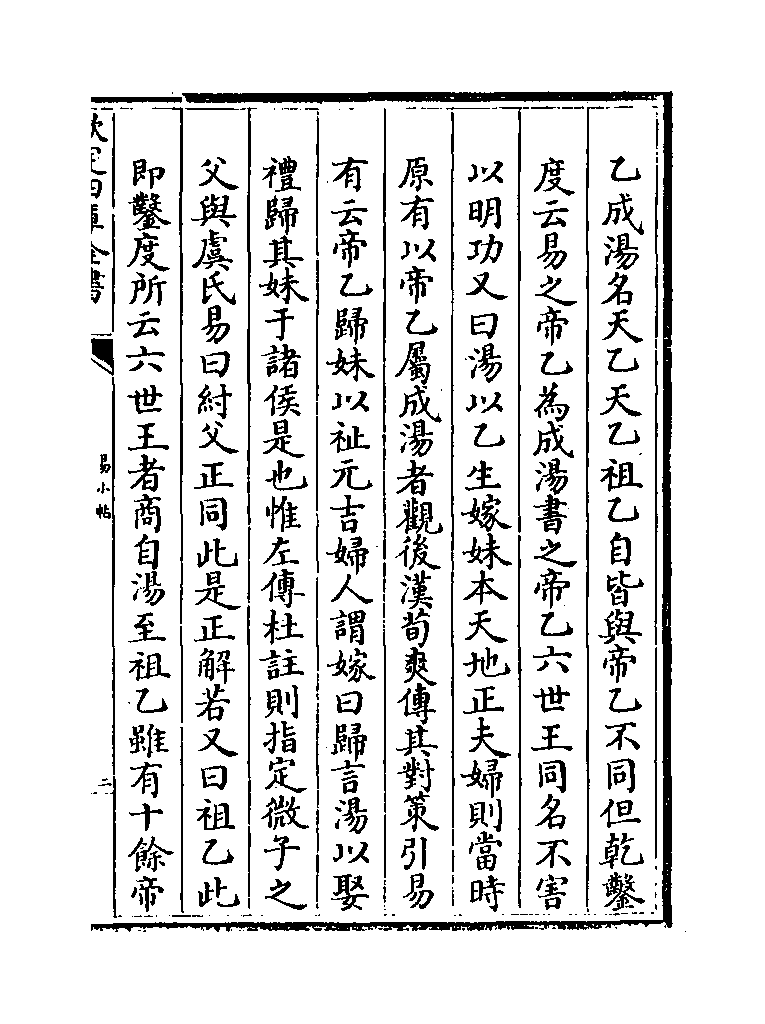 乙成湯名天乙天乙祖乙自皆與帝乙不同但乾鑿
度云易之帝乙為成湯書之帝乙六世王同名不害
以明功又曰湯以乙生嫁妹本天地正夫婦則當時
原有以帝乙屬成湯者觀後漢荀爽傳其對策引易
有云帝乙歸妹以祉元吉婦人謂嫁曰歸言湯以娶
禮歸其妹于諸侯是也惟左傳杜註則指定微子之
父與虞氏易曰紂父正同此是正解若又曰祖乙此
即鑿度所云六世王者商自湯至祖乙雖有十餘帝
欽定四庫全書
易小帖
二